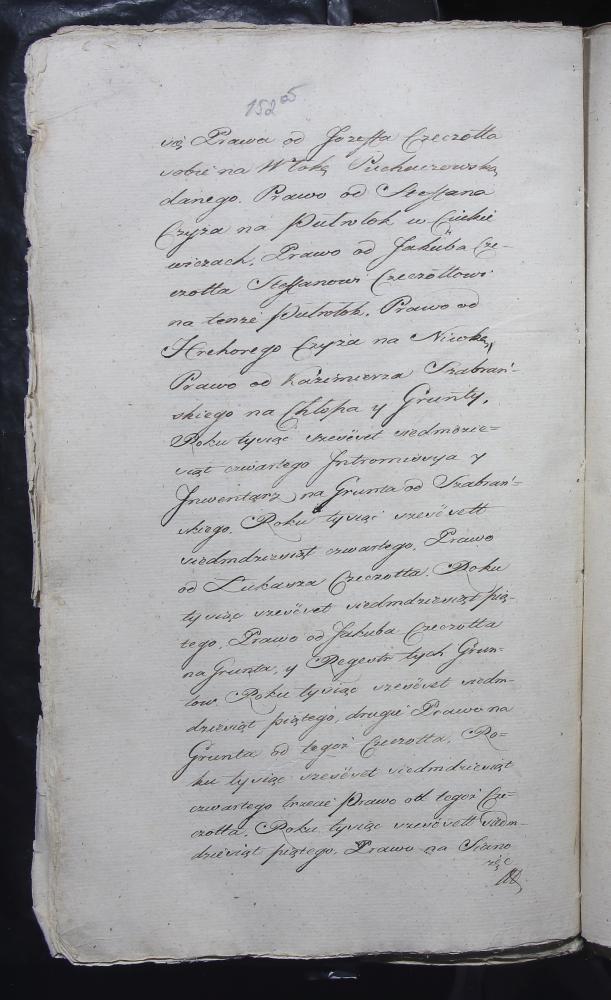 152 05
się Prawa od Jozeffa Czeczotta
sobie na Włokę Puchaczowską
danego. Prawo od Steffana
Czyża na Pułwłok w Cickie
wiczach, Prawo od Jakuba Cze-
czotta Steffanowi Czeczottowi
na tenże Pułwłok, Prawo od
Hrehorego Czyża na Niwkę,
Prawo od Kazimierza Szabrań-
skiego na Chłopa y Grunty,
Roku tysiąc szesćset siedmdzie-
siąt czwartego Intromissya y
Inwentarz na Grunta od Szabrań-
skiego. Roku tysiąc szesćsett
siedmdziesiąt czwartego, Prawo
od Łukasza Czeczotta. Roku
tysiąc szesćset siedmdziesiąt pią-
tego, Prawo od Jakuba Czeczotta
na Grunta, y Regestr tych Grun-
tow. Roku tysiąc szesćset siedm-
dziesiąt piątego, drugie Prawo na
Grunta od tegoż Czeczotta, Ro-
ku tysiąc szesćset siedmdziesiąt
czwartego trzecie Prawo od tegoż Cze-
czotta, Roku tysiąc szesćsett siedm-
dziesiąt piątego, Prawo na Siano
żęc